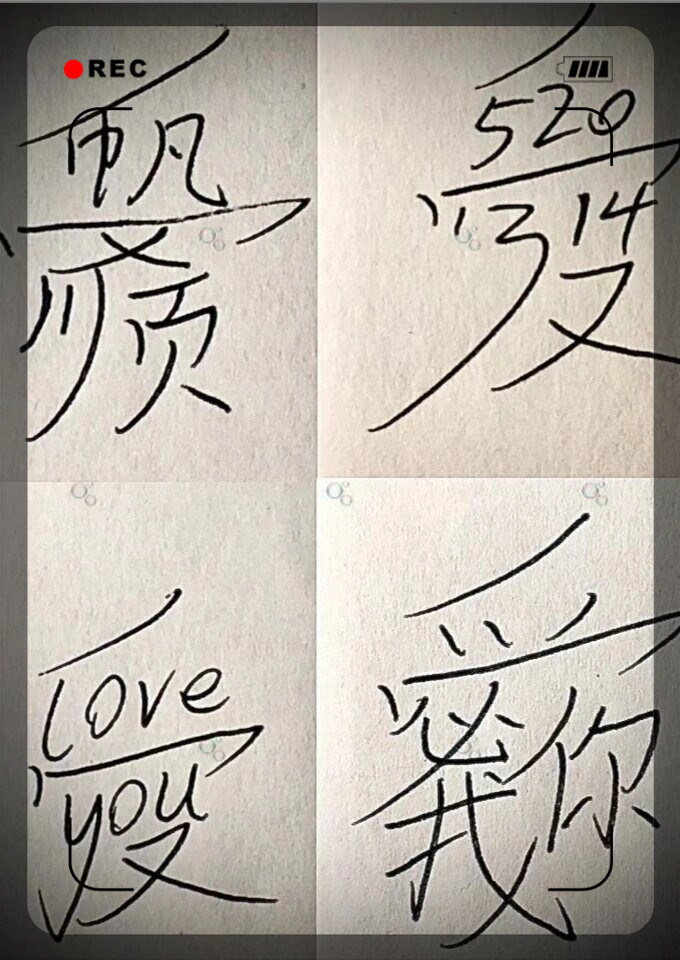 REC
帆
顺
520
1314
love
you
愛
我 你